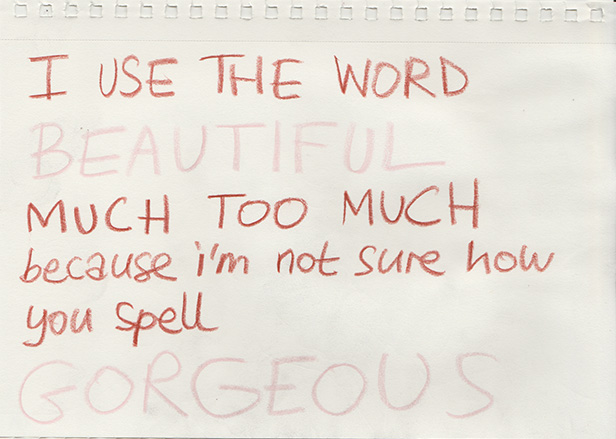 I USE THE WORD
BEAUTIFUL
MUCH TOO MUCH
because i'm not sure how
you spell
GORGEOUS